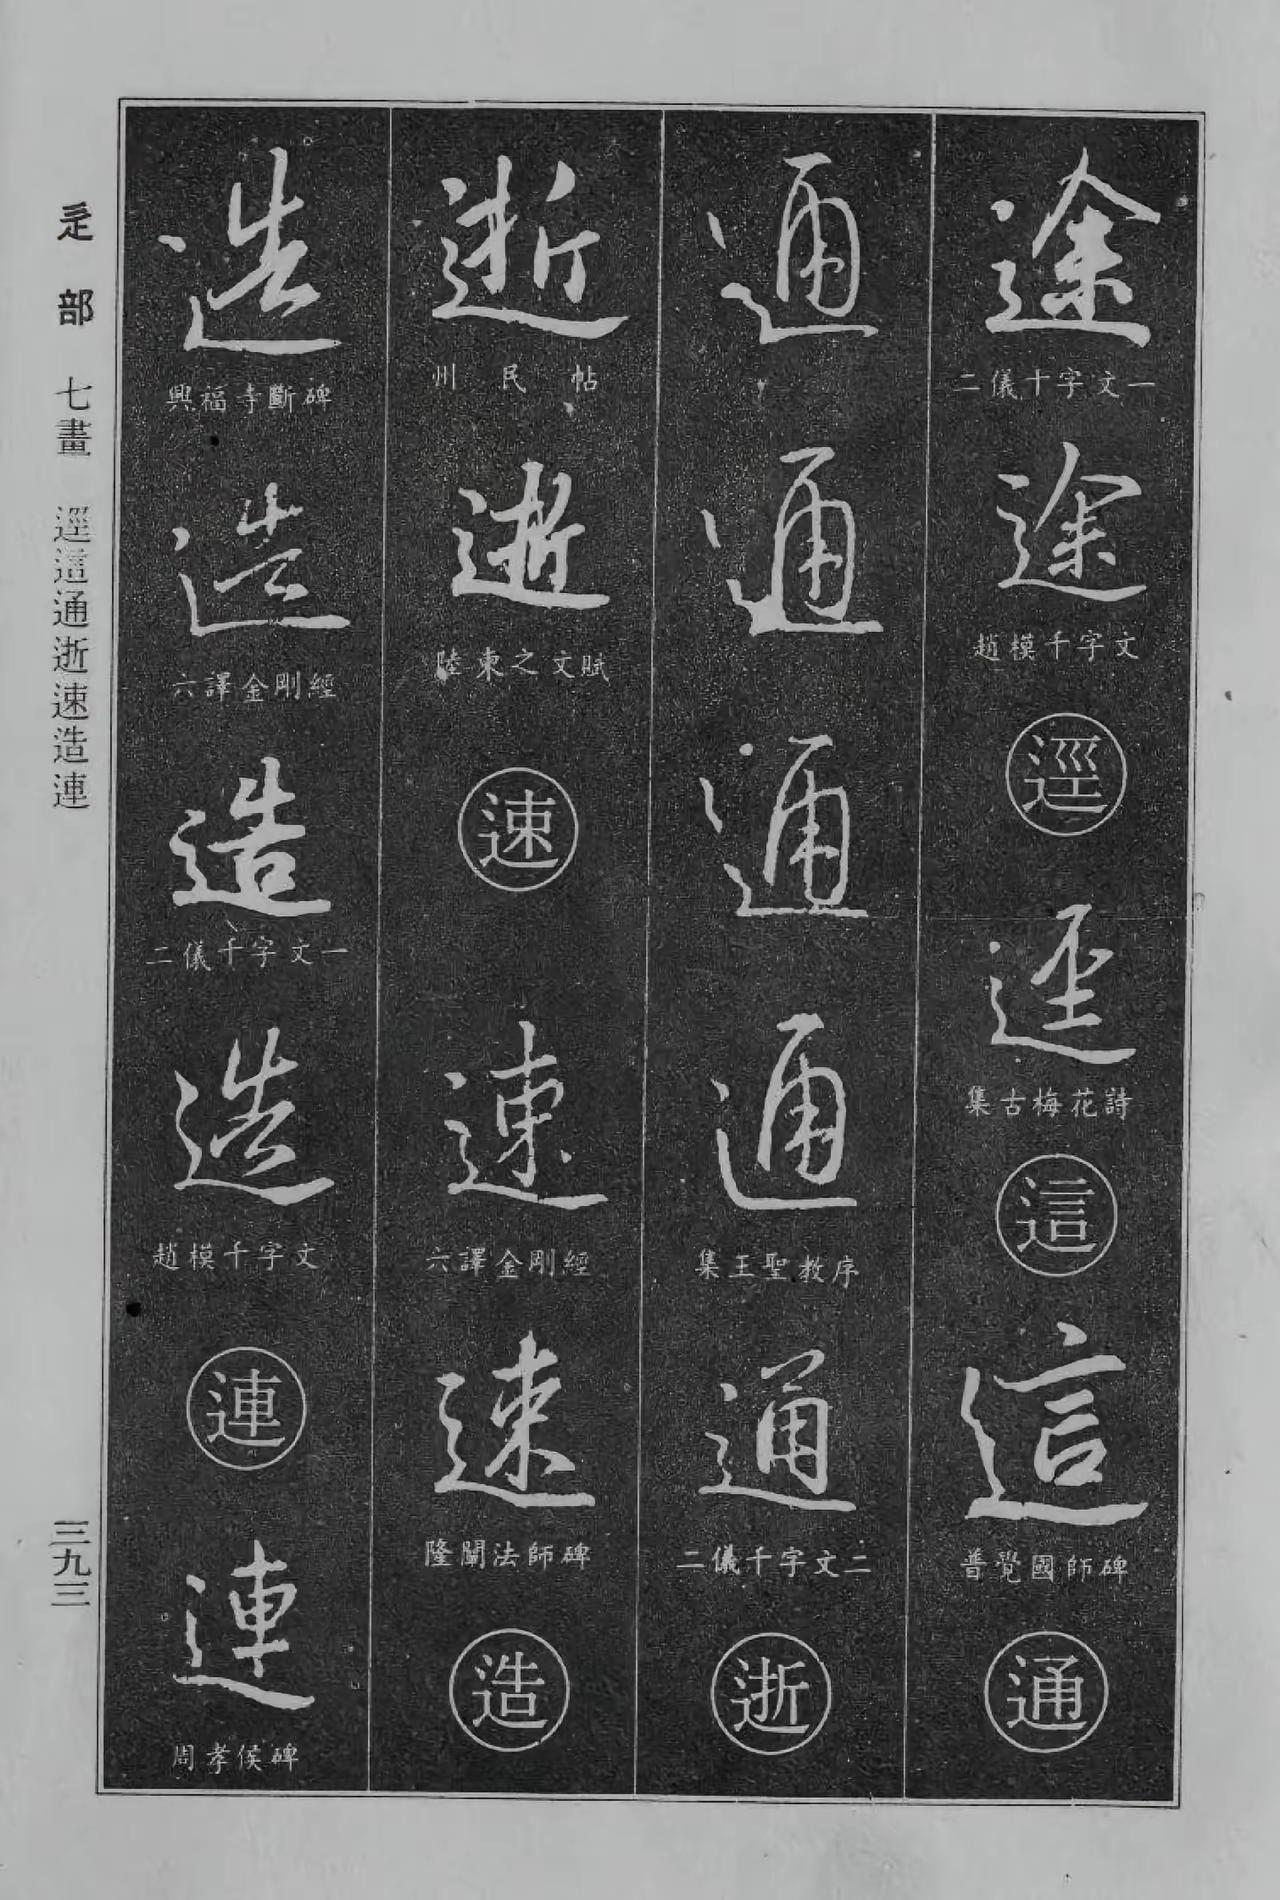 途
二儀十字文一
途
趙模千字文
逕
逕
集古梅花詩
這
這
普覺國師碑
通
通
通
通
通
集王聖教序
通
二儀千字文二
逝
逝
州民帖
逝
陸柬之文賦
速
速
六譯金剛經
速
隆闡法師碑
造
造
興福寺斷碑
造
六譯金剛經
造
二儀千字文一
造
趙模千字文
連
連
周孝侯碑
辵部 七畫 逕這通逝速造連
三九三